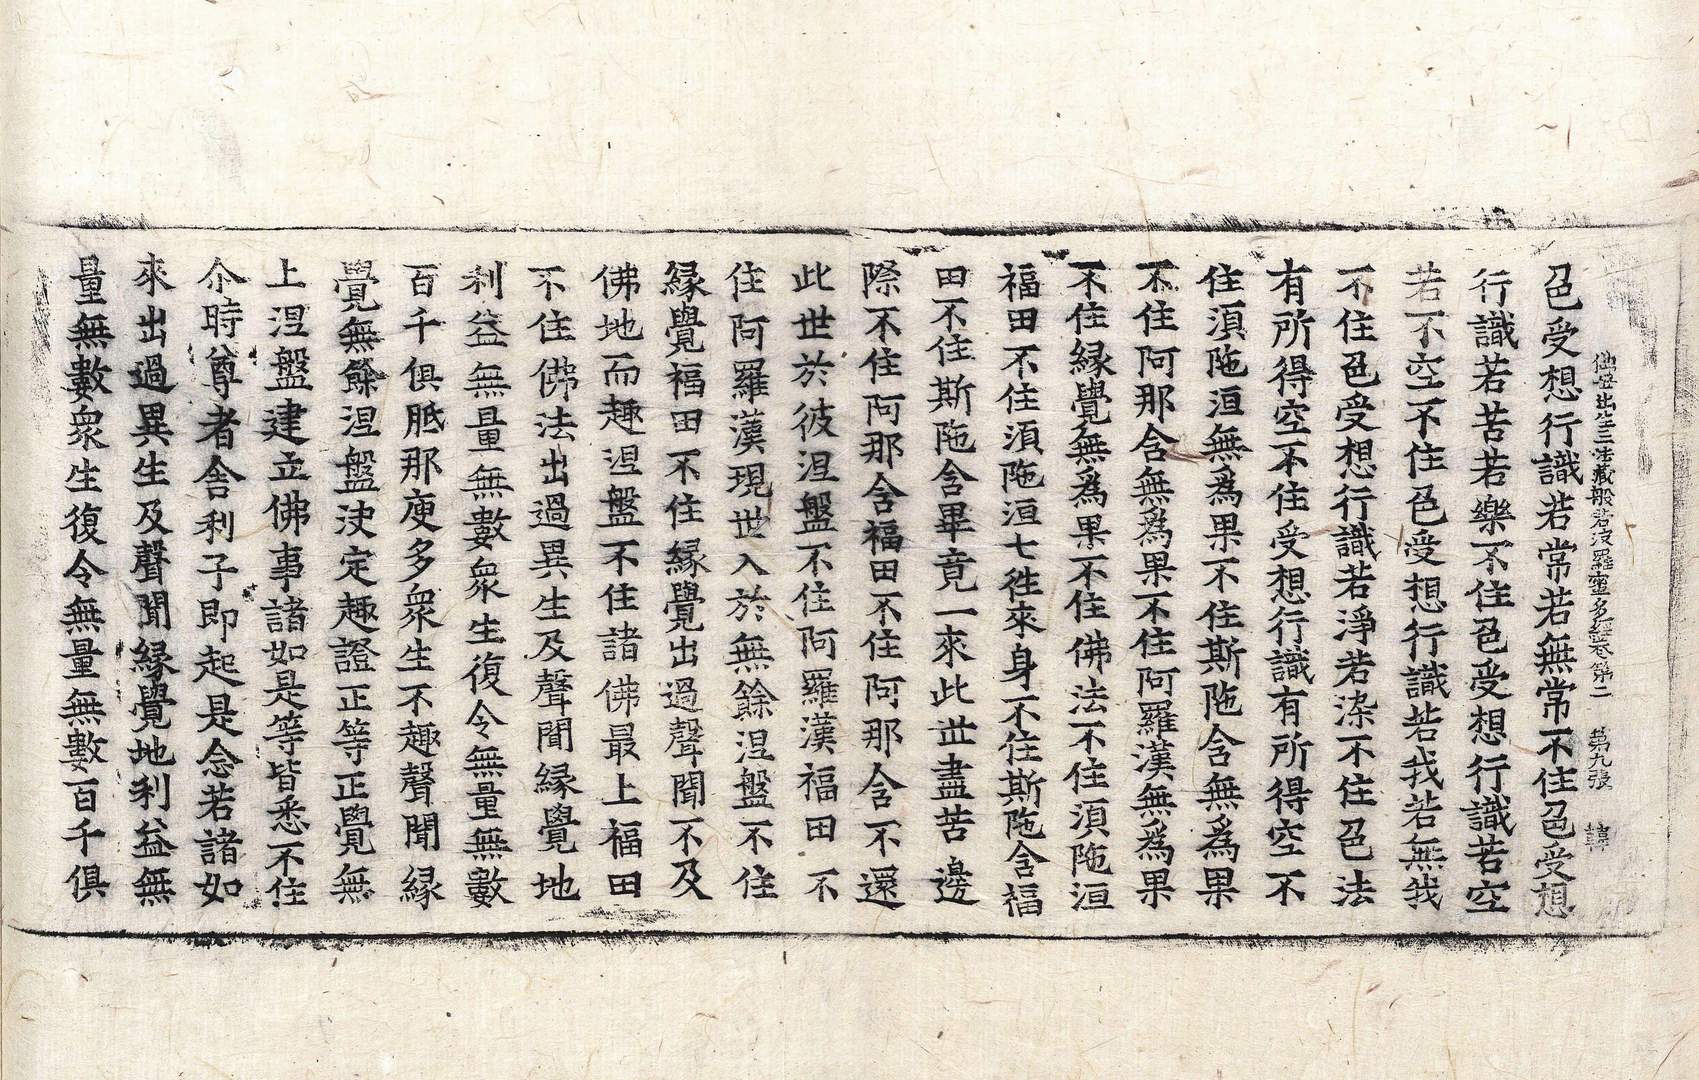 佛母出生三法藏般若波羅蜜多經卷第二　第九張　韓
色受想行識若常若無常不住色受想
行識若苦若樂不住色受想行識若空
若不空不住色受想行識若我若無我
不住色受想行識若淨若染不住色法
有所得空不住受想行識有所得空不
住須陁洹無爲果不住斯陁含無爲果
不住阿那含無爲果不住阿羅漢無爲果
不住緣覺無爲果不住佛法不住須陁洹
福田不住須陁洹七徃來身不住斯陁含福
田不住斯陁含畢竟一來此世盡苦邊
際不住阿那含福田不住阿那含不還
此世於彼涅盤不住阿羅漢福田不
住阿羅漢現世入於無餘涅盤不住
緣覺福田不住緣覺出過聲聞不及
佛地而趣涅盤不住諸佛最上福田
不住佛法出過異生及聲聞緣覺地
利益無量無數衆生復令無量無數
百千俱胝那庾多衆生不趣聲聞緣
覺無餘涅盤決定趣證正等正覺無
上涅盤建立佛事諸如是等皆悉不住
尒時尊者舍利子即起是念若諸如
來出過異生及聲聞緣覺地利益無
量無數衆生復令無量無數百千俱